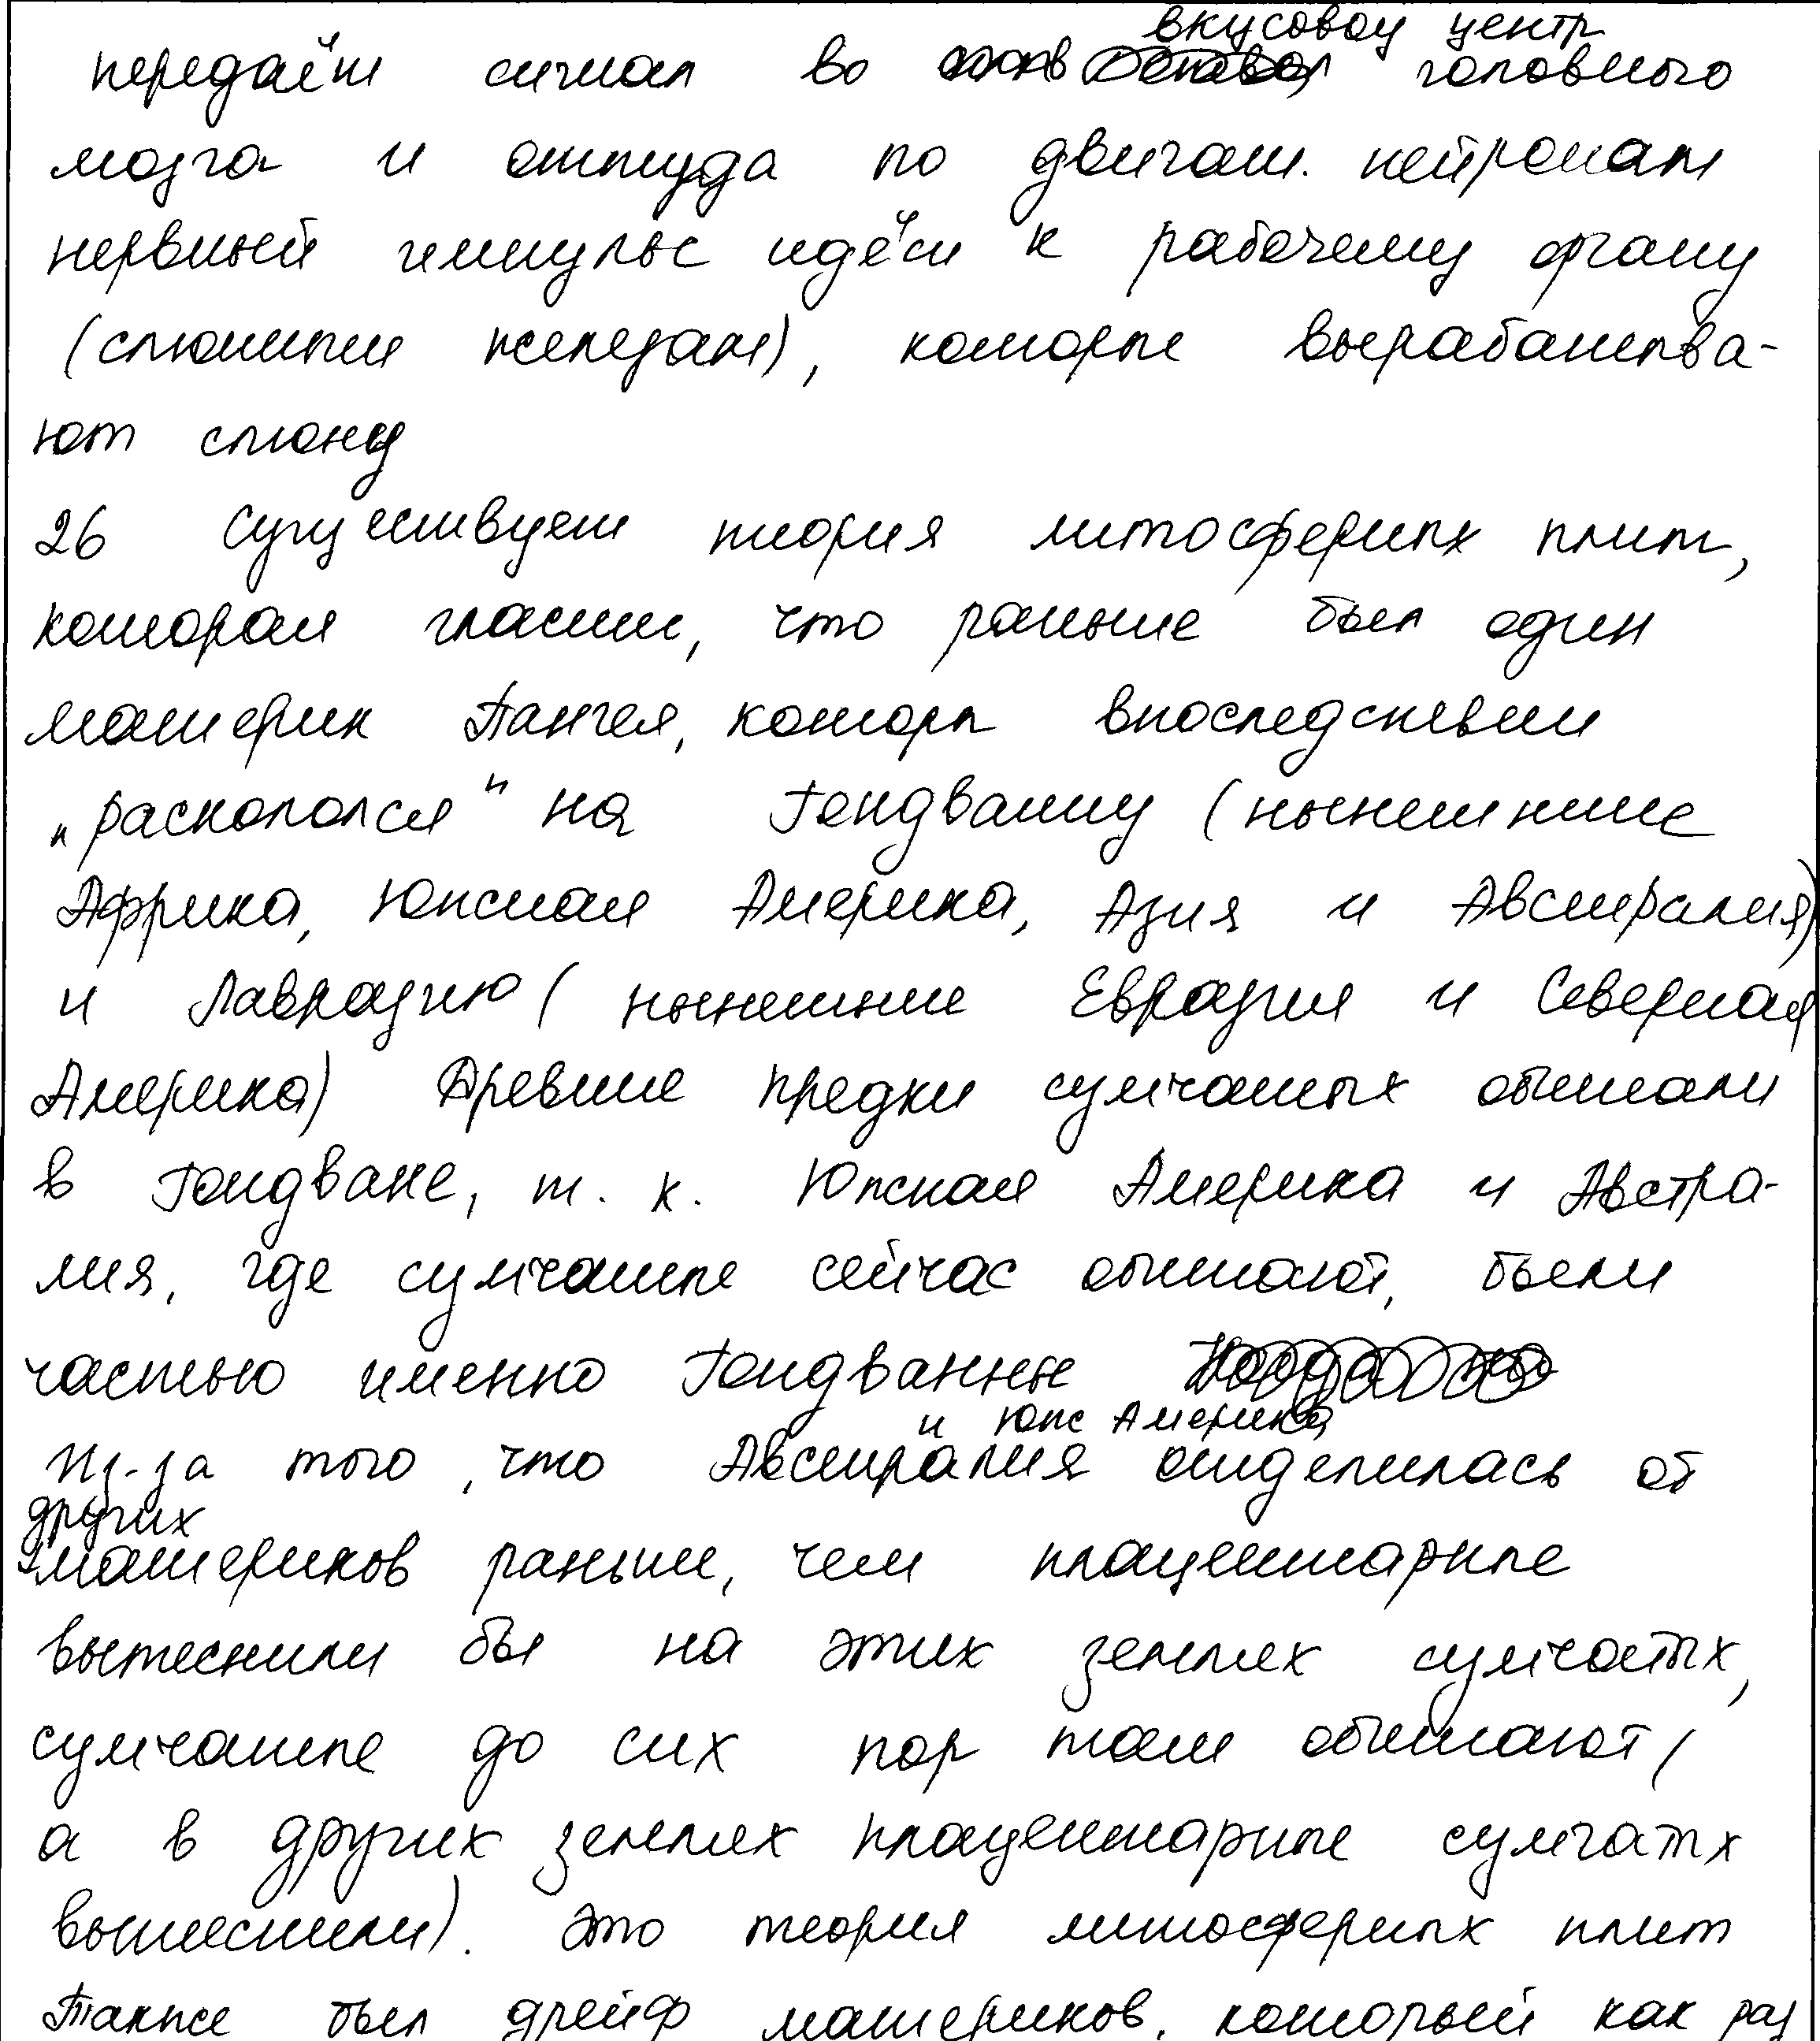 вкусовой центр
передаёт сигнал во головного
мозга и оттуда по двигат. нейронам
нервный импульс идёт к рабочему органу
(слюнным железам), которые вырабатыва-
ют слюну
26 Существует теория литосферных плит,
которая гласит, что раньше был один
материк Пангея, который впоследствии
„раскололся" на Гондванну (нынешние
Африка, Южная Америка, Азия и Австралия)
и Лавразию (нынешние Евразия и Северная
Америка) Древние предки сумчатых обитали
в Гондване, т. к. Южная Америка и Австра-
лия, где сумчатые сейчас обитают, были
частью именно Гондванны
и Южс Америка
Из-за того, что Австралия отделилась от
других
материков раньше, чем плацентарные
вытеснили бы на этих землях сумчатых,
сумчатые до сих пор там обитают (
а в других землях плацентарные сумчатых
вытеснили). Это теория литосферных плит
Также был дрейф материков, который как раз